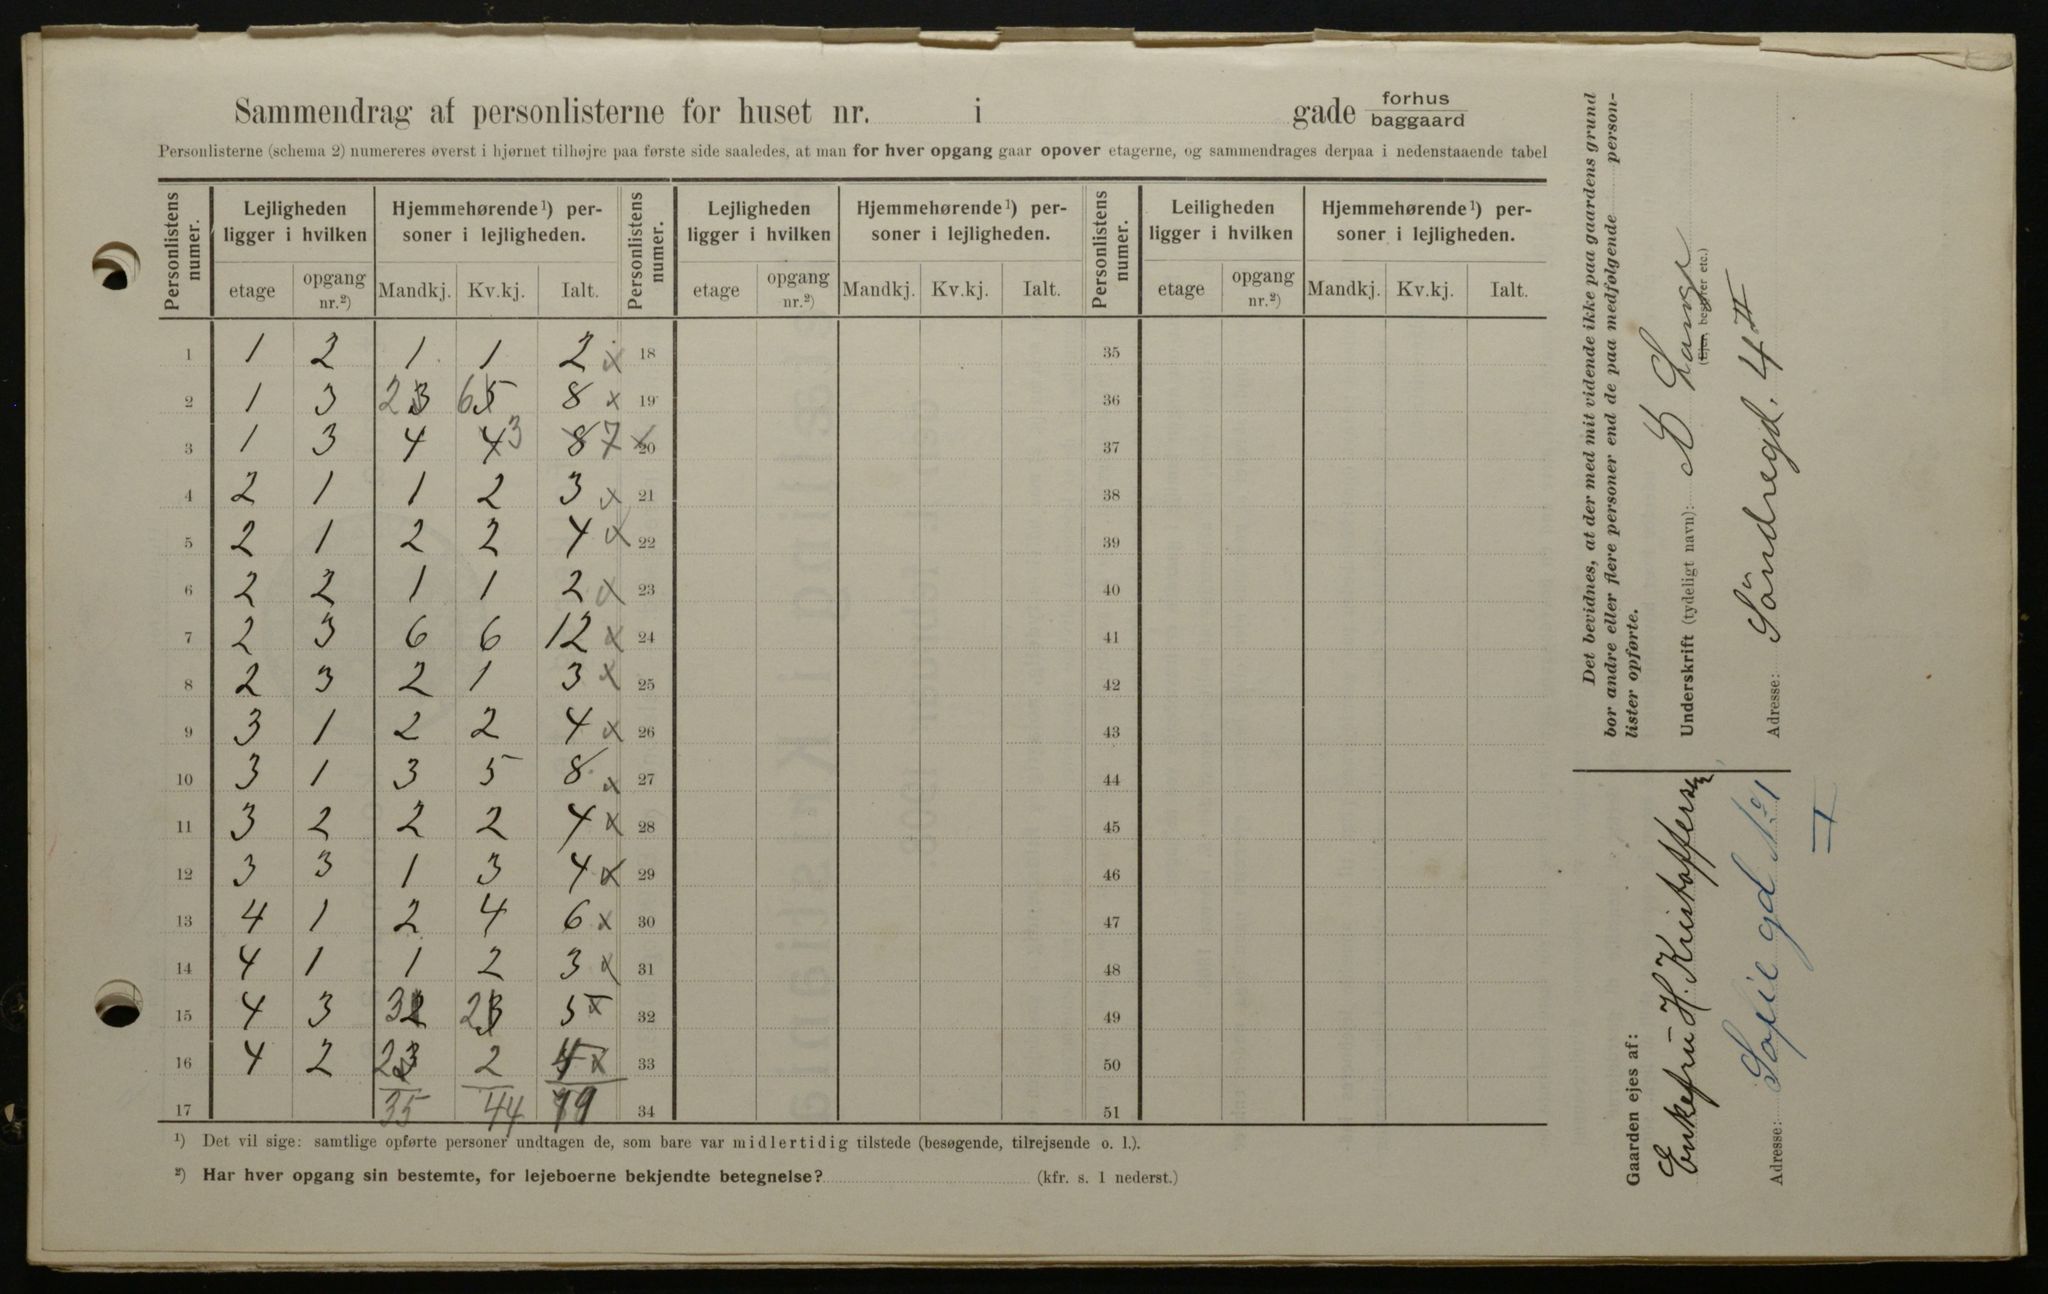 Sammendrag af personlisterne for huset nr. i gade forhus baggaard
Personlisterne (schema 2) numereres øverst i hjørnet tilhøjre paa første side saaledes, at man for hver opgang gaar opover etagerne, og sammendrages derpaa i nedenstaaende tabel
Personlistens numer. Lejligheden ligger i hvilken Hjemmehørende¹) personer i lejligheden. Personlistens numer. Lejligheden ligger i hvilken Hjemmehørende¹) personer i lejligheden. Personlistens numer. Leiligheden ligger i hvilken Hjemmehørende¹) personer i lejligheden.
etage opgang nr.²) Mandkj. Kv.kj. Ialt. etage opgang nr.²) Mandkj. Kv.kj. Ialt. etage opgang nr.²) Mandkj. Kv.kj. Ialt.
1 1 2 1 1 2 x 18 35
2 1 3 2 3 6 5 8 x 19 36
3 1 3 4 4 3 8 7 x 20 37
4 2 1 1 2 3 x 21 38
5 2 1 2 2 4 x 22 39
6 2 2 1 1 2 x 23 40
7 2 3 6 6 12 x 24 41
8 2 3 2 1 3 x 25 42
9 3 1 2 2 4 x 26 43
10 3 1 3 5 8 x 27 44
11 3 2 2 2 4 x 28 45
12 3 3 1 3 4 x 29 46
13 4 1 2 4 6 x 30 47
14 4 1 1 2 3 x 31 48
15 4 3 3 2 2 3 5 x 32 49
16 4 2 2 3 2 4 x 33 50
17 35 44 79 34 51
¹) Det vil sige: samtlige opførte personer undtagen de, som bare var midlertidig tilstede (besøgende, tilrejsende o. l.).
²) Har hver opgang sin bestemte, for lejeboerne bekjendte betegnelse? (kfr. s. 1 nederst.)
Det bevidnes, at der med mit vidende ikke paa gaardens grund
bor andre eller flere personer end de paa medfølgende person-
lister opførte.
Underskrift (tydeligt navn): Lange
(Ejer, bestyrer etc.)
Adresse: Söndregd. 4 II
Gaarden ejes af:
Enkefru H. Kristoffersen
Adresse: Sofie gd No 1
I